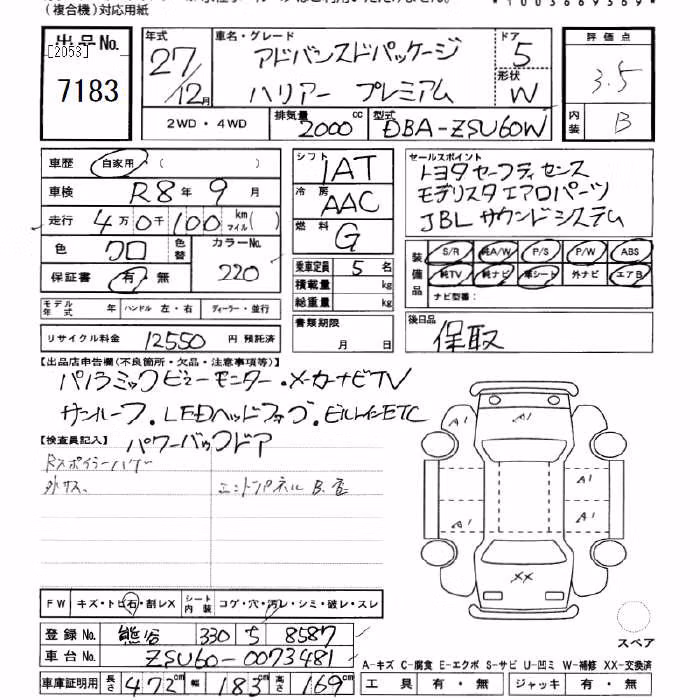 (複合機)対応用紙
出品No.
[2053]
7183
年式
27/12月
車名・グレード
アドバンスドパッケージ
ハリアー プレミアム
ドア
5
形状
W
評価点
3.5
内装
B
2WD・4WD
排気量
2000 cc
型式
DBA-ZSU60W
車歴 自家用・(
車検 R8年 9月
走行 4万0千100 km マイル( )
色 クロ 色替 カラーNo. 220
保証書 有・無
シフト IAT
冷房 AAC
燃料 G
乗車定員 5名
積載量 kg
総重量 kg
セールスポイント
トヨタセーフティセンス
モデリスタエアロパーツ
JBLサウンドシステム
装備品
S/R 純A/W P/S P/W ABS
純TV 純ナビ 革シート 外ナビ エアB
ナビ型番:
モデル年式 年 ハンドル 左・右 ディーラー・並行
リサイクル料金 12550 円 預託済
書類期限
月 日
後日品
保取
【出品店申告欄(不良箇所・欠品・注意事項等)】
パノラミックビューモニター・メーカーナビTV
サンルーフ・LEDヘッドフォグ・ビルトインETC
【検査員記入】 パワーバックドア
Rスポイラーハゲ
外キズ
F W キズ・トビ石・割レX シート内装 コゲ・穴・汚レ・シミ・破レ・スレ
登録No. 熊谷 330 ち 8587
車台No. ZSU60-0073481
車庫証明用 長さ 472cm 幅 183cm 高さ 169cm
A1
A1
A1
A1
A1
XX
スペア
A-キズ C-腐食 E-エクボ S-サビ U-凹ミ W-補修 XX-交換済
工具 有・無 ジャッキ 有・無